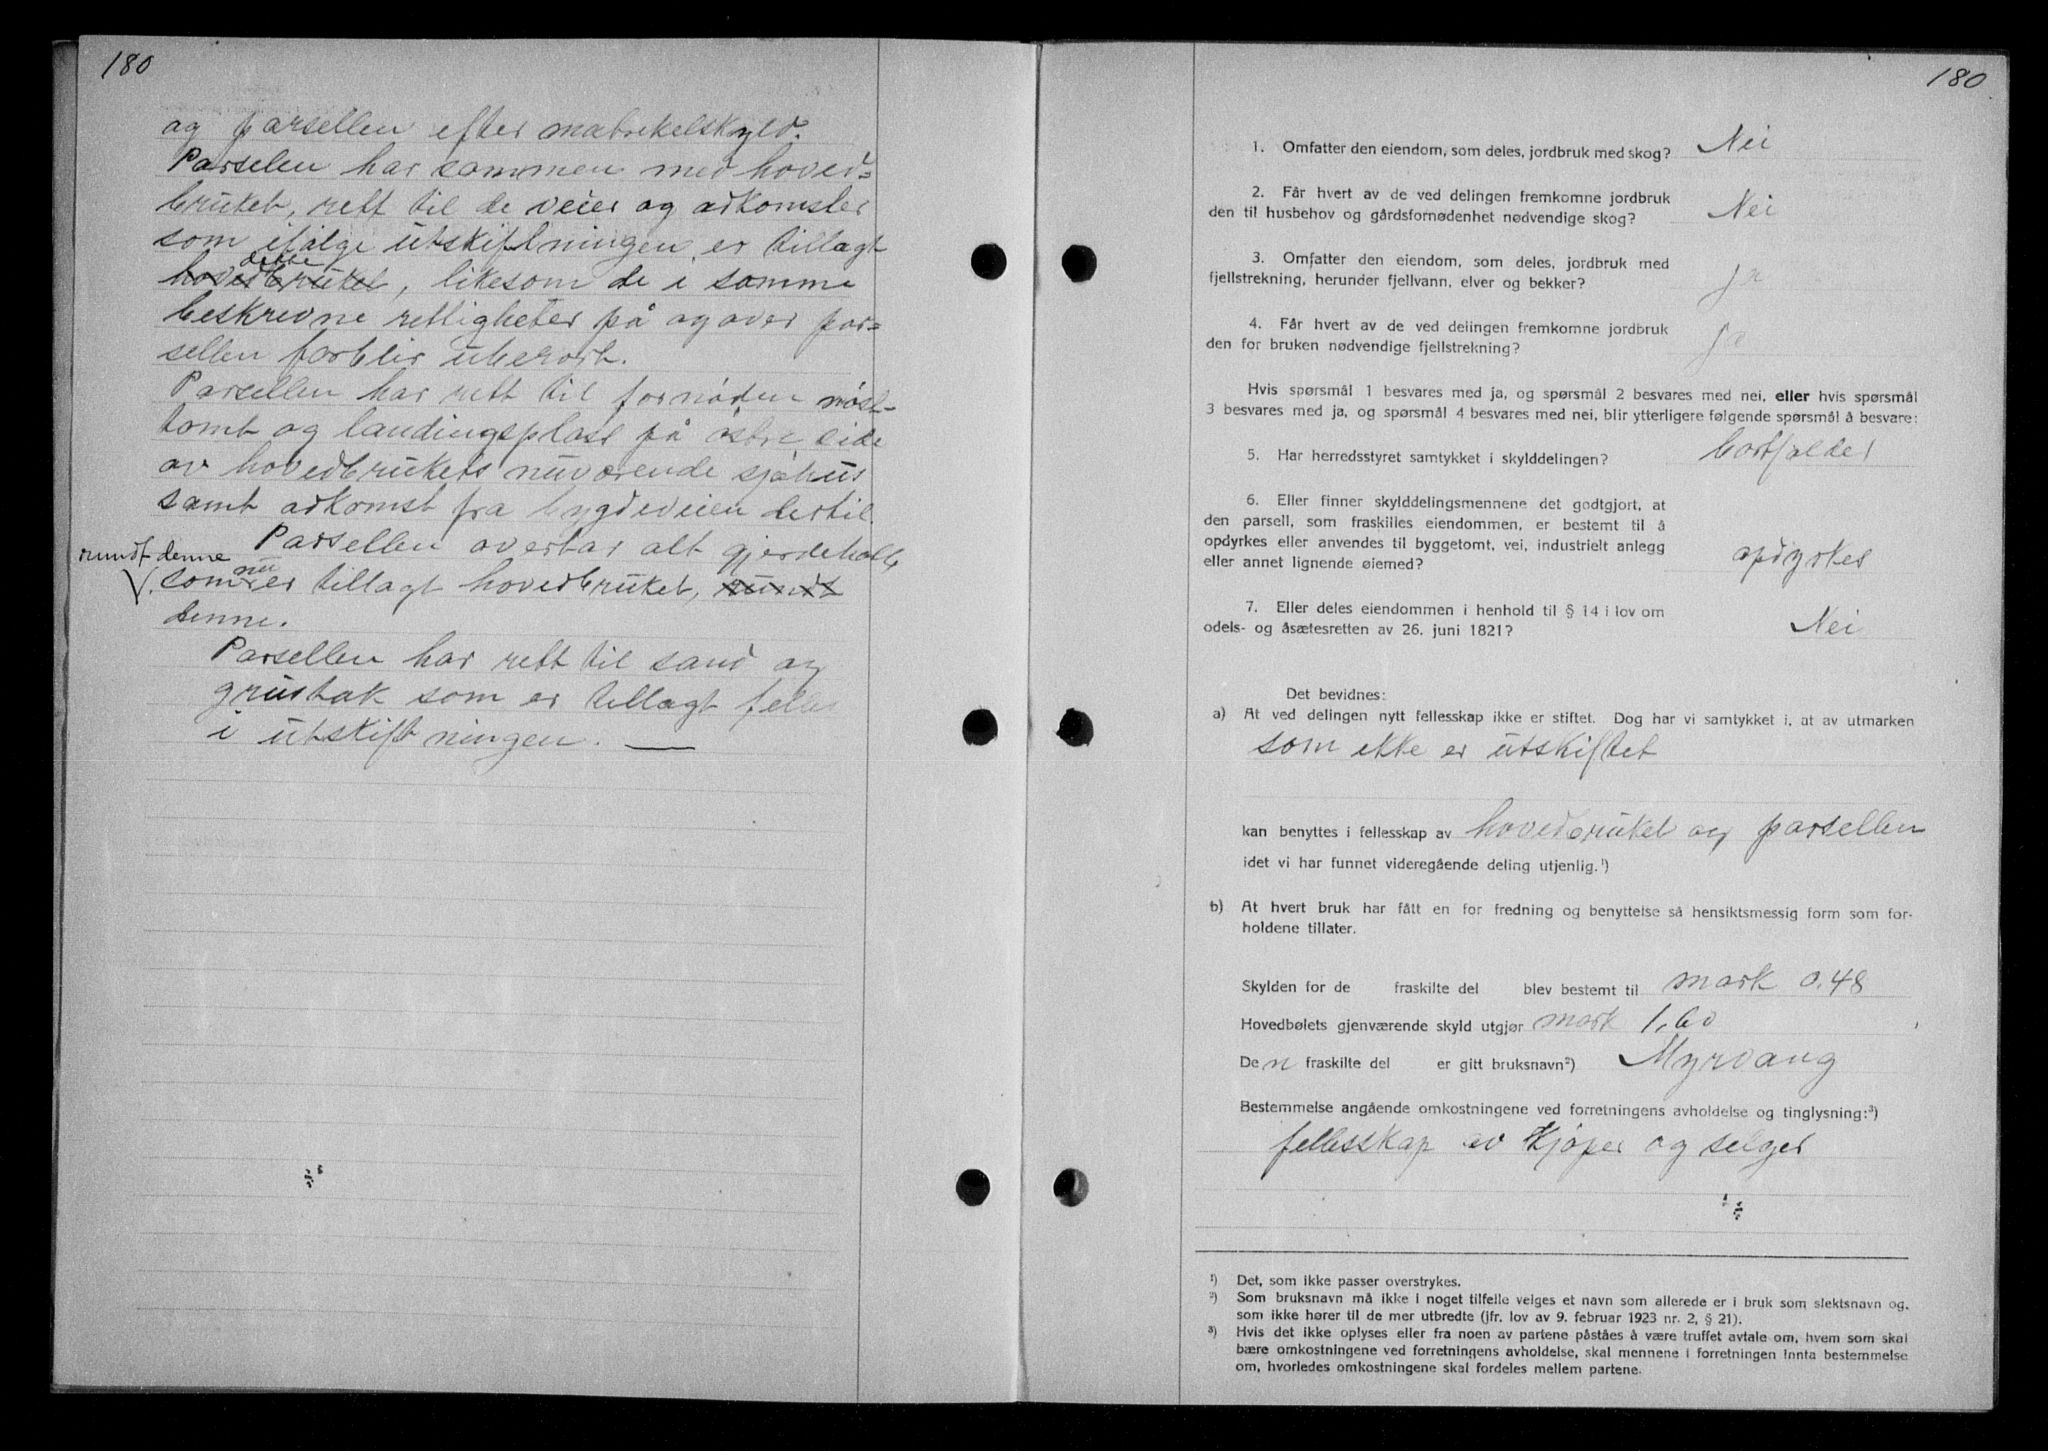 180
og parsellen efter matrikelskyld.
Parselen har sammen med hoved=
bruket, rett til de veier og adkomster
som ifølge utskiftningen er tillagt
dette
hovedbruket, likesom de i samme
beskrevne rettigheter på og over par=
sellen forblir uberørt.
Parsellen har rett til fornøden nøst-
tomt og landingsplass på østre side
av hovedbrukets nuværende sjøhus
samt adkomst fra bygdeveien dertil.
Parsellen overtar alt gjerdehold
rundt denne
V. som nu er tillagt hovedbruket, rundt
denne.
Parsellen har rett til sand og
grustak som er tillagt felles
i utskiftningen. —
180
1. Omfatter den eiendom, som deles, jordbruk med skog? Nei
2. Får hvert av de ved delingen fremkomne jordbruk
den til husbehov og gårdsfornødenhet nødvendige skog? Nei
3. Omfatter den eiendom, som deles, jordbruk med
fjellstrekning, herunder fjellvann, elver og bekker? ja
4. Får hvert av de ved delingen fremkomne jordbruk
den for bruken nødvendige fjellstrekning? ja
Hvis spørsmål 1 besvares med ja, og spørsmål 2 besvares med nei, eller hvis spørsmål
3 besvares med ja, og spørsmål 4 besvares med nei, blir ytterligere følgende spørsmål å besvare:
5. Har herredsstyret samtykket i skylddelingen? bortfalder
6. Eller finner skylddelingsmennene det godtgjort, at
den parsell, som fraskilles eiendommen, er bestemt til å
opdyrkes eller anvendes til byggetomt, vei, industrielt anlegg
eller annet lignende øiemed? opdyrkes
7. Eller deles eiendommen i henhold til § 14 i lov om
odels- og åsætesretten av 26. juni 1821? Nei
Det bevidnes:
a) At ved delingen nytt fellesskap ikke er stiftet. Dog har vi samtykket i, at av utmarken
som ikke er utskiftet
kan benyttes i fellesskap av hovedbruket og parsellen
idet vi har funnet videregående deling utjenlig.¹)
b) At hvert bruk har fått en for fredning og benyttelse så hensiktsmessig form som for-
holdene tillater.
Skylden for de fraskilte del blev bestemt til mark 0.48
Hovedbølets gjenværende skyld utgjør mark 1,60
Den fraskilte del er gitt bruksnavn²) Myrvang
Bestemmelse angående omkostningene ved forretningens avholdelse og tinglysning:³)
fellesskap av kjøper og selger
¹) Det, som ikke passer overstrykes.
²) Som bruksnavn må ikke i noget tilfelle velges et navn som allerede er i bruk som slektsnavn og,
som ikke hører til de mer utbredte (jfr. lov av 9. februar 1923 nr. 2, § 21).
³) Hvis det ikke oplyses eller fra noen av partene påståes å være truffet avtale om, hvem som skal
bære omkostningene ved forretningens avholdelse, skal mennene i forretningen innta bestemmelse
om, hvorledes omkostningene skal fordeles mellem partene.